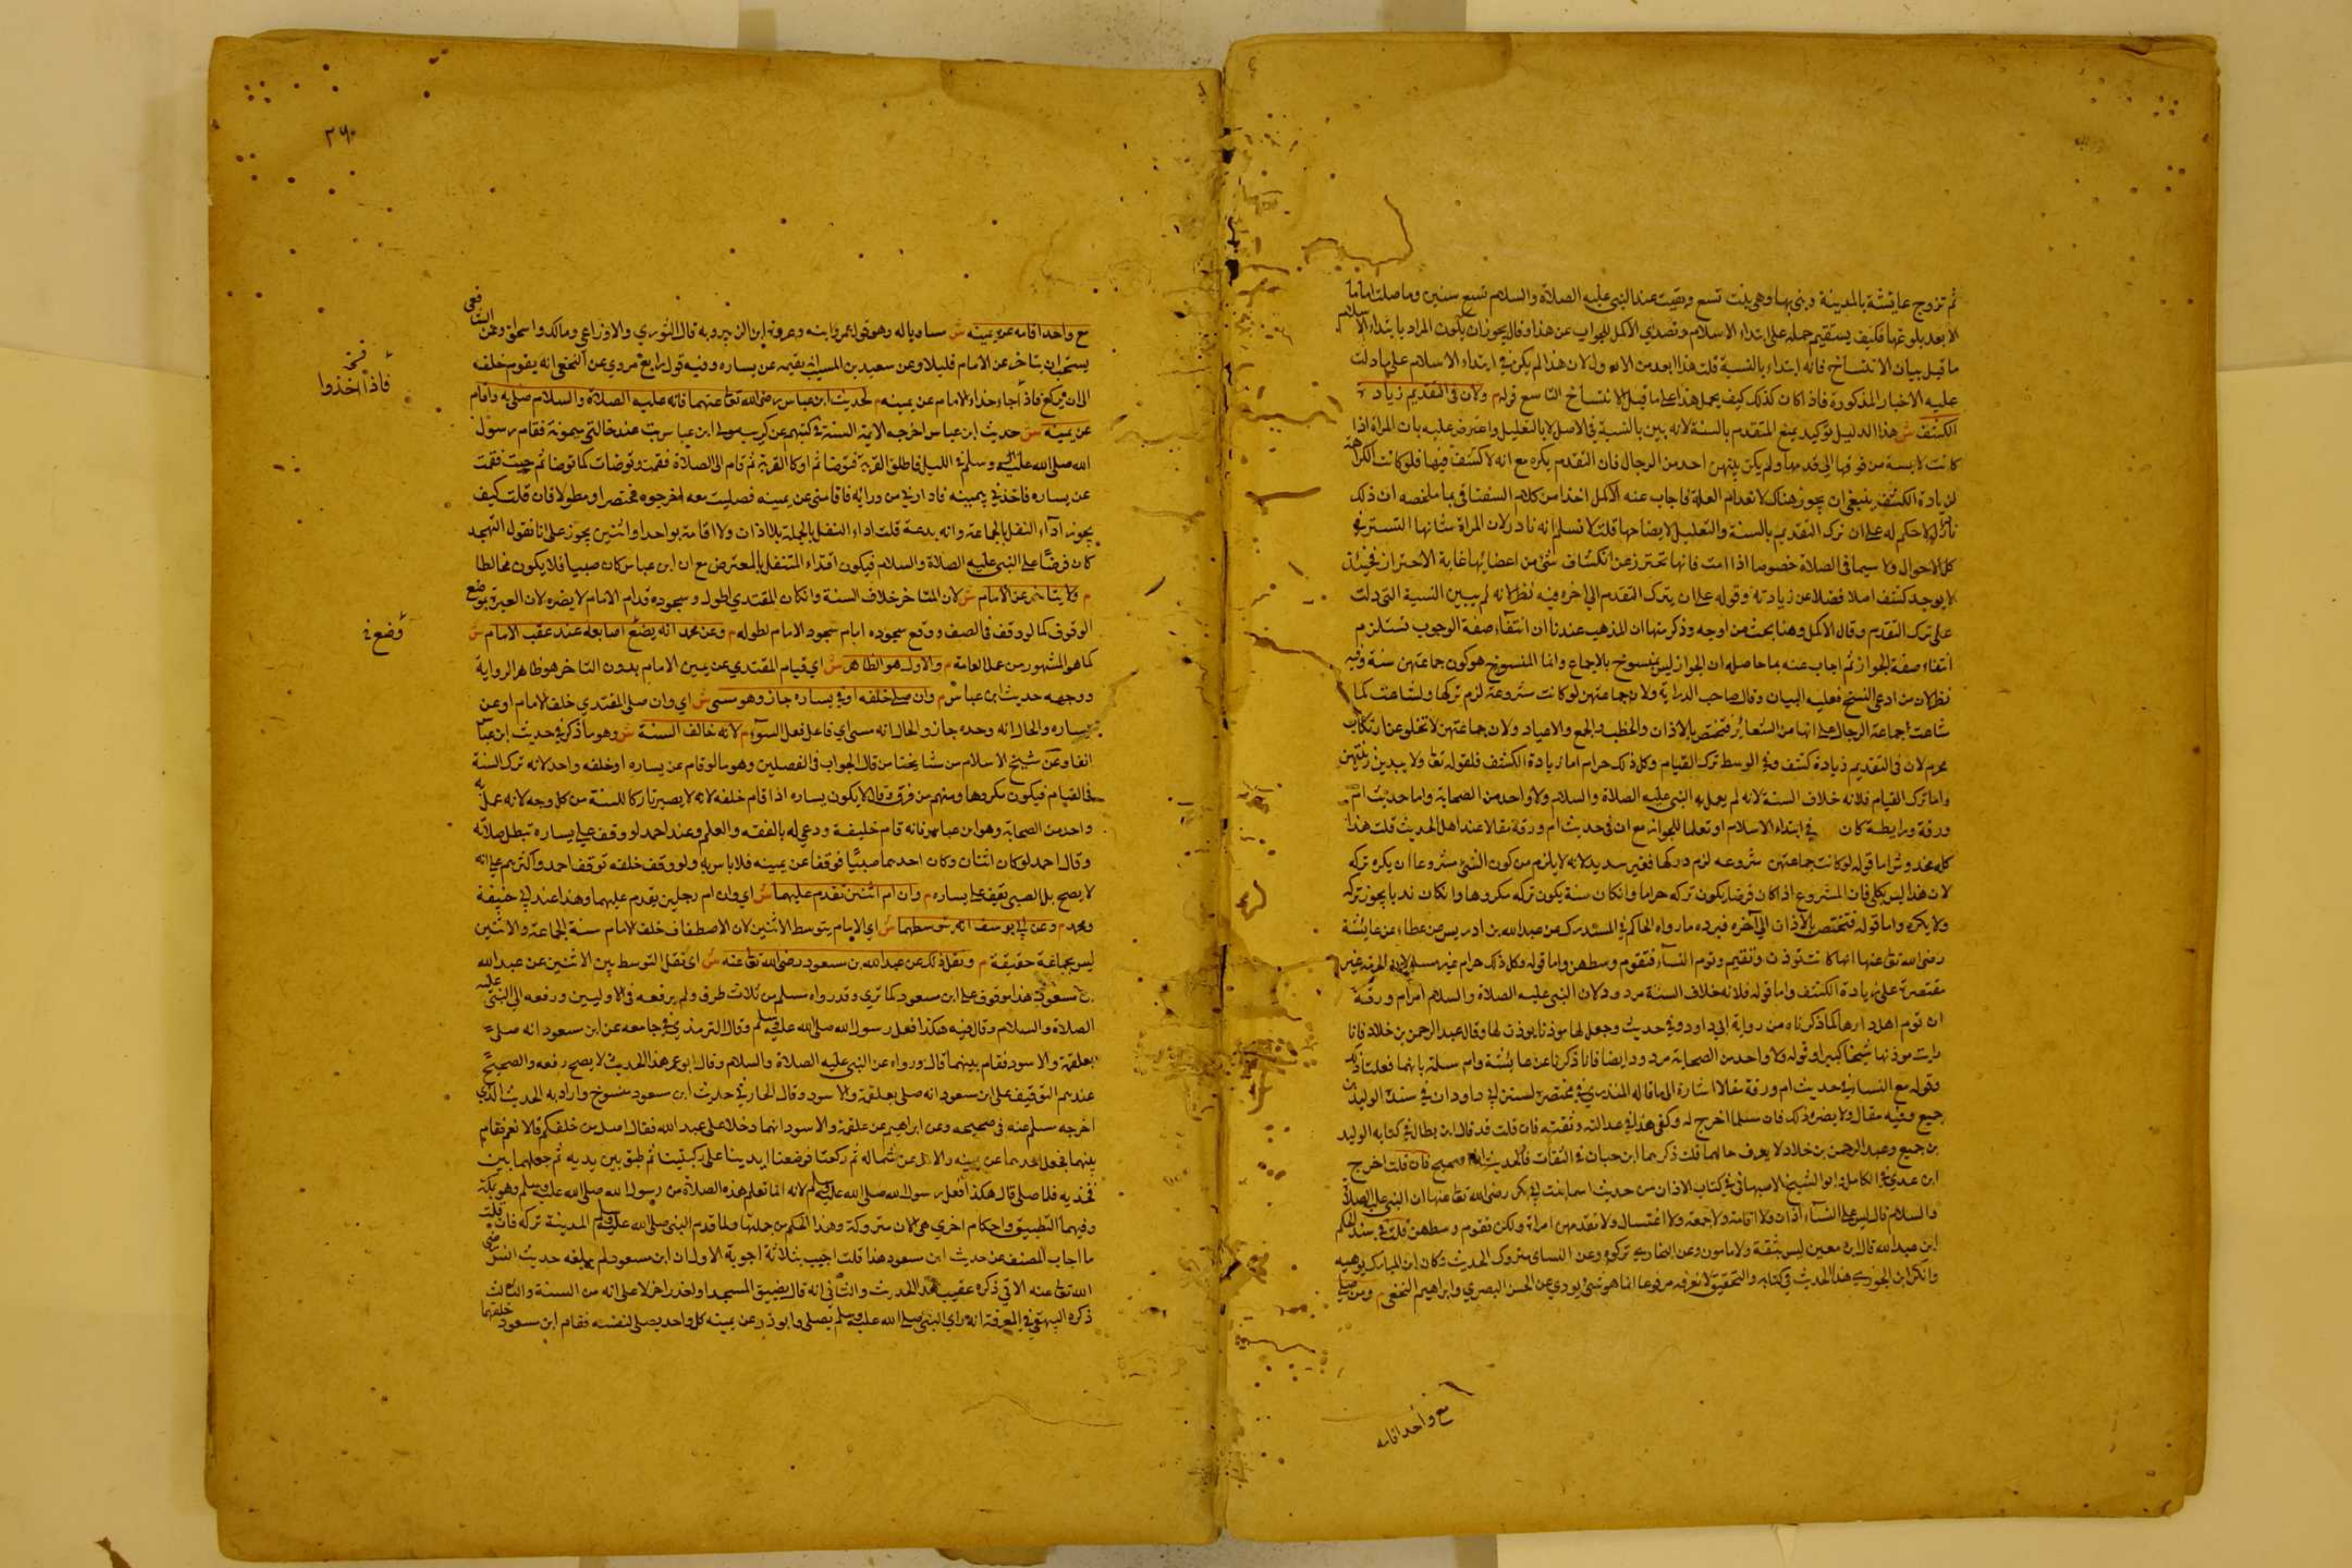 ثم تزوج عايشة بالمدينة وبنى بها وهى بنت تسع وبقيت عند النبى عليه الصلاة والسلام تسع سنين وما صلت اماما
الا بعد بلوغها فكيف يستقيم حمله على ابتداء الاسلام وتصدي الاكمل للجواب عن هذا وقال يجوز ان يكون المراد بابتداء الاسلام
ما قبل بيان الانتساخ فانه ابتداء بالنسبة قلت هذا ابعد من الاول لان هذا لم يكن في ابتداء الاسلام على ما دلت
عليه الاخبار المذكورة فاذا كان كذلك كيف يحمل هذا على ما قبل الانتساخ التاسع قوله م ولان فى التقديم زيادة
الكشف ش هذا الدليل توكيد يمنع المتقدم بالسنة لانه بين بالنسبة فى الاصل لا بالتعليل واعترض عليه بان المراة اذا
كانت لابسة من فوقها الى قدمها ولم يكن بينهن احد من الرجال فان التقدم يكره مع انه لا كشف فيها فلو كانت الكراهة
لزيادة الكشف ينبغي ان يجوز هناك لانعدام العلة فاجاب عنه الاكمل اخذا من كلام السغناقى بما ملخصه ان ذلك
نادر لا حكم له على ان ترك التقديم بالسنة والتعليل لايضاحها قلت لا نسلم انه نادر لان المراة شانها التستر في
كل الاحوال ولا سيما فى الصلاة خصوصا اذا امت فانها تحترز عن انكشاف شئ من اعضائها غاية الاحتراز فحينئذ
لا يوجد كشف اصلا فضلا عن زيادته وقوله على ان يترك التقدم الى اخره فيه نظر لانه لم يبين النسبة التى دلت
على ترك التقدم وقال الاكمل وهنا بحث من اوجه وذكر منها ان المذهب عندنا ان انتفاء صفة الوجوب تستلزم
انتفاء صفة الجواز ثم اجاب عنه بما حاصله ان الجواز ليس بمنسوخ بالاجماع وانما المنسوخ هو كون جماعتهن سنة وفيه
نظر لان من ادعى النسخ فعليه البيان وقال صاحب الدراية ولان جماعتهن لو كانت مشروعة لزم تركها ولشاعت كما
شاعت جماعة الرجال على انها من الشعائر فتختص بالاذان والخطب والجمع والاعياد ولان جماعتهن لا تخلو عن ارتكاب
محرم لان فى التقديم زيادة كشف وفى الوسط ترك القيام وكل ذلك حرام اما زيادة الكشف فلقوله تعا ولا يبدين زينتهن
واما ترك القيام فلانه خلاف السنة لانه لم يعمل به النبى عليه الصلاة والسلام ولا واحد من الصحابة واما حديث ام
ورقة ورايطة كان فى ابتداء الاسلام او تعلما للجواز مع ان فى حديث ام ورقة مقالا عند اهل الحديث قلت هذا
كله مخدوش اما قوله لو كانت جماعتهن مشروعه لزم تركها فغير سديد لانه لا يلزم من كون الشئ مشروعا ان يكره تركه
لان هذا ليس بكلى فان المشروع اذا كان فرضا يكون تركه حراما وان كان سنة يكون تركه مكروها وان كان ندبا يجوز تركه
ولا يكره واما قوله فتختص بالاذان الى آخره فيرده ما رواه الحاكم فى المستدرك عن عبد الله بن ادريس عن عطاء عن عايشة
رضى الله تعا عنها انها كانت توذن وتقيم وتوم النساء فتقوم وسطهن واما قوله وكل ذلك حرام غير مسلم لان الحرمة غير
مقتصرة على زيادة الكشف واما قوله فلانه خلاف السنة مردود لان النبى عليه الصلاة والسلام امر ام ورقة
ان توم اهل دارها كما ذكرناه من رواية ابي داود وفي حديث وجعل لها موذنا يوذن لها وقال عبد الرحمن بن خلاد فانا
رايت موذنها شيخا كبيرا وقوله ولا واحد من الصحابة مردود ايضا فانا ذكرنا عن عايشة وام سلمة بانهما فعلتا ذلك
وقوله مع النسا فى حديث ام ورقة مقالا اشارة الى ما قاله المنذري في مختصره لسنن ابي داود ان في سنده الوليد بن
جميع وفيه مقال ولا يضره ذلك فان مسلما اخرج له وكفى هذا في عدالته وثقته فان قلت قد قال ابن بطال فى كتابه الوليد
بن جميع وعبد الرحمن بن خلاد لا يعرف حالهما قلت ذكرهما ابن حبان فى الثقات فالحديث اذا صحيح فان قلت اخرج
ابن عدي في الكامل وابو الشيخ الاصبهانى في كتاب الاذان من حديث اسما بنت ابي بكر رضى الله تعا عنها ان النبى عليه الصلاة
والسلام قال ليس على النساء اذان ولا اقامة ولا جمعة ولا اغتسال ولا تقدمهن امراة ولكن تقوم وسطهن قلت في سنده الحكم
ابن عبد الله قال ابن معين ليس بثقة ولا مامون وعن البخارى تركوه وعن النساى متروك الحديث وكان ابن المبارك يوهيه
وانكر ابن الجوزي هذا الحديث فى كتابه والتحقيق لا نعرفه مرفوعا انما هو شئ يروي عن الحسن البصري وابراهيم النخعى م ومن صلى
مع واحد اقامه
٢٦٠
مع واحد اقامه عن يمينه ش مساويا له وهو قول عمر وابنه وعروة ابن الزبير وبه قال الثوري والاوزاعي ومالك واسحق وعن الشافعى
يستحب ان يتاخر عن الامام قليلا وعن سعيد بن المسيب انه يقيمه عن يساره وفيه قول رابع مروي عن النخعى انه يقوم خلفه
الى ان يركع فاذا جاء احد والا قام عن يمينه م لحديث ابن عباس رضى الله تعا عنهما فانه عليه الصلاة والسلام صلى به واقام
عن يمينه ش حديث ابن عباس اخرجه الائمة الستة فى كتبهم عن كريب مولى ابن عباس بت عند خالتى ميمونة فقام رسول
الله صلى الله عليه وسلم في الليل فاطلق القربة فتوضا ثم اوكا القربة ثم قام الى الصلاة فقمت وتوضات كما توضا ثم جيت فقمت
عن يساره فاخذني بيمينه فادارني من ورائه فاقامني عن يمينه فصليت معه اخرجوه مختصرا ومطولا فان قلت كيف
يجوز اداء النفل بالجماعة وانه بدعة قلت اداء النفل بالجملة بلا اذان ولا اقامة بواحد او اثنين يجوز على انا نقول التهجد
كان فرضا على النبى عليه الصلاة والسلام فيكون اقتداء المتنفل بالمفترض مع ان ابن عباس كان صبيا فلا يكون مخالطا
م ولا يتاخر عن الامام ش لان المتاخر خلاف السنة وان كان المقتدي اطول وسجوده قدام الامام لا يضره لان العبرة بموضع
الوقوف كما لو وقف فى الصف ووقع سجوده امام سجود الامام لطوله م وعن محمد انه يضع اصابعه عند عقب الامام ش
كما هو المشهور من عمل العامة م والاول هو الظاهر ش اي قيام المقتدي عن يمين الامام بدون التاخر هو ظاهر الرواية
ووجهه حديث ابن عباس م وان صلى خلفه او في يساره جاز وهو مسئ ش اي وان صلى المقتدي خلف الامام او عن
يساره والحال انه وحده جاز والحال انه مسئ اي فاعل فعل السوء م لانه خالف السنة ش وهو ما ذكر في حديث ابن عباس
انفا وعن شيخ الاسلام من مشايخنا من قال الجواب فى الفصلين وهو ما لو قام عن يساره او خلفه واحد لانه ترك السنة
فى القيام فيكون مكروها ومنهم من فرق وقال لا يكون يساره اذا قام خلفه لانه لا يصير تاركا للسنة من كل وجه لانه عمل به
واحد من الصحابة وهو ابن عباس فانه قام خليفة ودعى له بالفقه والعلم وعند احمد لو وقف على يساره تبطل صلاته
وقال احمد لو كان اثنان وكان احدهما صبيا فوقفا عن يمينه فلا باس به ولو وقف خلفه توقف احمد واكثرهم على انه
لا يصح بل الصبى يقف على يساره م وان ام اثنين تقدم عليهما ش اي وان ام رجلين يقدم عليهما وهذا عند ابي حنيفة
ومحمد م وعن ابي يوسف انه يتوسطهما ش اي الامام يتوسط الاثنين لان الاصطفاف خلف الامام سنة الجماعة والاثنين
ليس بجماعة حقيقة م ونقل ذلك عن عبد الله بن مسعود رضى الله تعا عنه ش اى نقل التوسط بين الاثنين عن عبد الله
بن مسعود هذا موقوف على ابن مسعود كما تري وقد رواه مسلم من ثلاث طرق ولم يرفعه فى الاوليين ورفعه الى النبى عليه
الصلاة والسلام وقال فيه هكذا فعل رسول الله صلى الله عليه وسلم وقال الترمذي في جامعه عن ابن مسعود انه صلى
بعلقمة والاسود فقام بينهما قال ورواه عن النبى عليه الصلاة والسلام وقال ابو عمر هذا الحديث لا يصح رفعه والصحيح
عندهم التوقيف على ابن مسعود انه صلى بعلقمة والاسود وقال الحازمي حديث ابن مسعود منسوخ واراد به الحديث الذي
اخرجه مسلم عنه فى صحيحه وعن ابراهيم عن علقمة والاسود انهما دخلا على عبد الله فقال اصلى من خلفكم قالا نعم فقام
بينهما فجعل احدهما عن يمينه والاخر عن شماله ثم ركعنا فوضعنا ايدينا على ركبتينا ثم طبق بين يديه ثم جعلهما بين
فخذيه فلما صلى قال هكذا فعل رسول الله صلى الله عليه وسلم لانه انما تعلم هذه الصلاة من رسول الله صلى الله عليه وسلم وهو بمكة
وفيهما التطبيق واحكام اخري هى الان متروكة وهذا الحكم من جملتها ولما قدم النبى صلى الله عليه وسلم المدينة تركه فان قلت
ما اجاب المصنف عن حديث ابن مسعود هذا قلت اجيب بثلاثة اجوبة الاول ان ابن مسعود لم يبلغه حديث انس رضى
الله تعا عنه الاتي ذكره عقيب هذا الحديث والثانى انه قال لضيق المسجد او لعذر اخر لا على انه من السنة والثالث
ذكره البيهقى في المعرفة انه راي النبى صلى الله عليه وسلم يصلى وابو ذر عن يمينه كل واحد يصلى لنفسه فقام ابن مسعود خلفهما
فاذا اخذوا
وضع